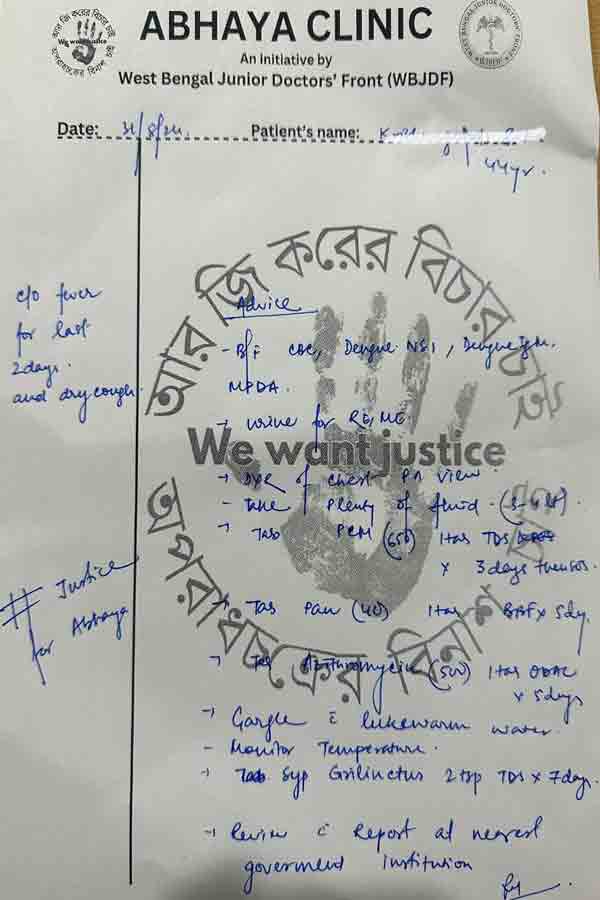 ABHAYA CLINIC
An initiative by
West Bengal Junior Doctors' Front (WBJDF)
আর জি করের বিচার চাই
We want justice
অপরাধচক্রের বিনাশ চাই
WEST BENGAL JUNIOR DOCTORS' FRONT
WBJDF
Date: 31/8/24. Patient's name:
44yr.
c/o fever
for last
2days.
and dry cough.
# Justice
for Abhaya
আর জি করের বিচার চাই
We want justice
অপরাধচক্রের বিনাশ চাই
Advice
- B/F CBC, Dengue NS1, Dengue IgM.
MPDA.
→ Urine for RE/ME.
→ of chest PA view.
- Take plenty of fluid. (3-4 lit)
→ Tab PCM (650) 1tab TDS
x 3days then SOS.
→ Tab Pan (40) 1tab BBF x 5dy.
→ Tab Azithromycin (500) 1tab ODAC
x 5days
→ Gargle c̄ lukewarm water.
- Monitor Temperature.
→ Syp Grilinctus 2tsp TDS x 7days.
→ Review c̄ report at nearest
goverment institution